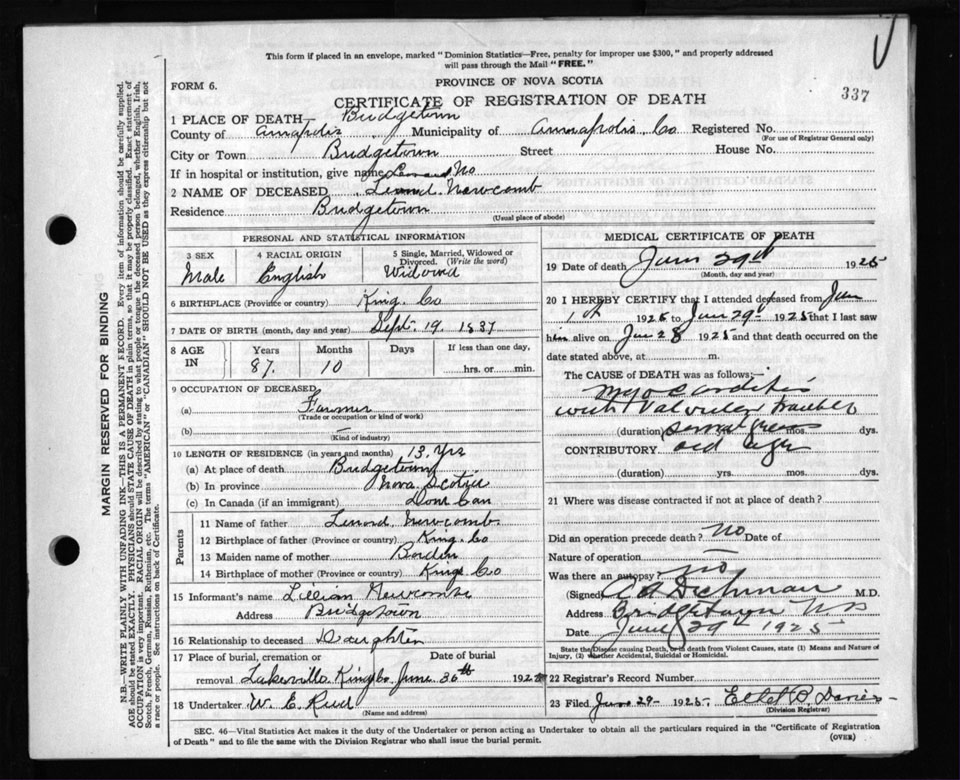 This form if placed in an envelope, marked "Dominion Statistics—Free, penalty for improper use $300," and properly addressed
will pass through the Mail "FREE."
FORM 6.
PROVINCE OF NOVA SCOTIA
CERTIFICATE OF REGISTRATION OF DEATH
337
1 PLACE OF DEATH— Bridgetown
County of Annapolis Municipality of Annapolis Co Registered No.
(For use of Registrar General only)
City or Town Bridgetown Street House No.
If in hospital or institution, give name No
2 NAME OF DECEASED Lenord Newcomb
Residence Bridgetown
(Usual place of abode)
PERSONAL AND STATISTICAL INFORMATION
3 SEX
Male
4 RACIAL ORIGIN
English
5 Single, Married, Widowed or
Divorced. (Write the word)
Widowd
6 BIRTHPLACE (Province or country) King. Co
7 DATE OF BIRTH (month, day and year) Sept. 19. 1837
8 AGE
IN
Years
87.
Months
10
Days
If less than one day,
hrs. or min.
9 OCCUPATION OF DECEASED
(a) Farmer
(Trade or occupation or kind of work)
(b)
(Kind of industry)
10 LENGTH OF RESIDENCE (in years and months) 13. Yrs
(a) At place of death Bridgetown
(b) In province Nova Scotia
(c) In Canada (if an immigrant) Dom Can
Parents
11 Name of father Lenord, Newcomb
12 Birthplace of father (Province or country) King. Co
13 Maiden name of mother Borden
14 Birthplace of mother (Province or Country) Kings Co
15 Informant's name Lillian Newcombe
Address Bridgetown
16 Relationship to deceased Daughter
17 Place of burial, cremation or
Date of burial
removal Lakeville Kings Co. June 30th 1925
18 Undertaker W. E. Reed
(Name and address)
MEDICAL CERTIFICATE OF DEATH
19 Date of death June 29th 1925
(Month, day and year)
20 I HEREBY CERTIFY that I attended deceased from June
1st 1925 to June 29th 1925 that I last saw
him alive on June 28 1925 and that death occurred on the
date stated above, at m.
The CAUSE of DEATH was as follows:
Myocarditis
with Valvular trouble
(duration) several years mos. dys.
CONTRIBUTORY old age
(duration) yrs. mos. dys.
21 Where was disease contracted if not at place of death?
Did an operation precede death? No Date of
Nature of operation —
Was there an autopsy? No
(Signed) Dechman M.D.
Address Bridgetown N S
Date June 29th 1925
State the Disease causing Death, or in death from Violent Causes, state (1) Means and Nature of
Injury, (2) whether Accidental, Suicidal or Homicidal.
22 Registrar's Record Number
23 Filed June 29 1925. B. Davies
(Division Registrar)
SEC. 46—Vital Statistics Act makes it the duty of the Undertaker or person acting as Undertaker to obtain all the particulars required in the "Certificate of Registration
of Death" and to file the same with the Division Registrar who shall issue the burial permit.
(OVER)
MARGIN RESERVED FOR BINDING
N.B.—WRITE PLAINLY WITH UNFADING INK—THIS IS A PERMANENT RECORD. Every item of information should be carefully supplied.
AGE should be stated EXACTLY. PHYSICIANS should STATE CAUSE OF DEATH in plain terms, so that it may be properly classified. Exact statement of
OCCUPATION is very important. RACIAL ORIGIN will be described by stating to what people or tongue the deceased person belonged, whether English, Irish,
Scotch, French, German, Russian, Ruthenian, etc. The terms "AMERICAN" or "CANADIAN" SHOULD NOT BE USED as they express citizenship but not
a race or people. See instructions on back of Certificate.